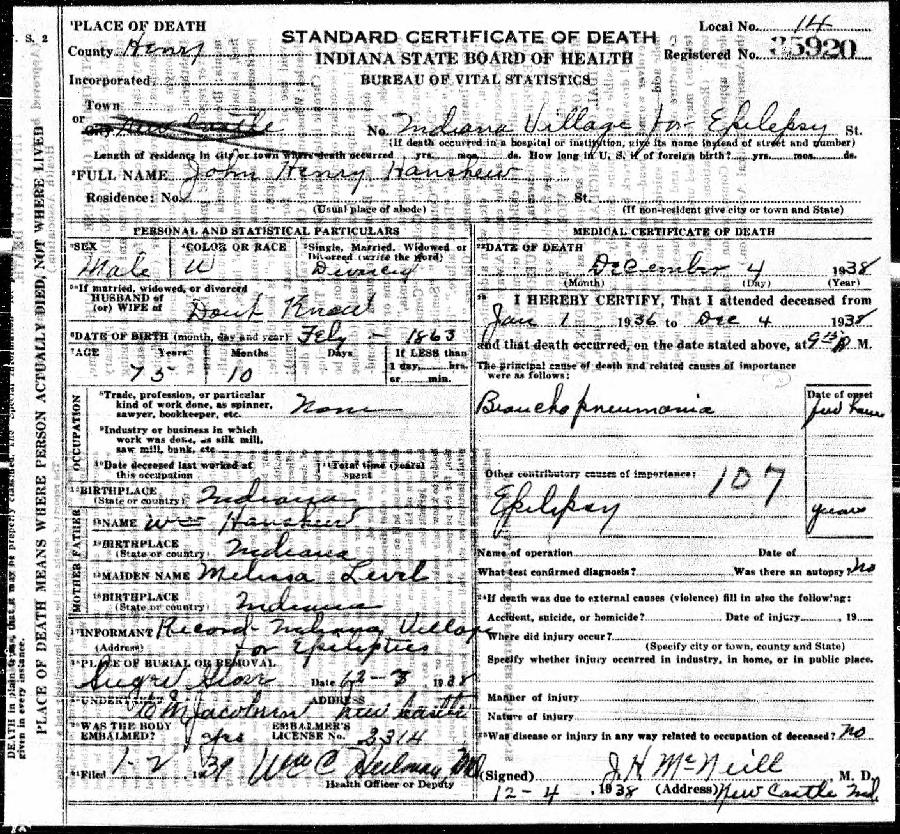 S. 2
PLACE OF DEATH
STANDARD CERTIFICATE OF DEATH
Local No. 14
County Henry
INDIANA STATE BOARD OF HEALTH
Registered No. 35920
Incorporated
BUREAU OF VITAL STATISTICS
Town
or
City New Castle No. Indiana Village for Epilepsy St.
(If death occurred in a hospital or institution, give its name instead of street and number)
Length of residence in city or town where death occurred yrs. mos. ds. How long in U. S. if of foreign birth? yrs. mos. ds.
FULL NAME John Henry Hanshew
Residence: No. St.
(Usual place of abode) (If non-resident give city or town and State)
PERSONAL AND STATISTICAL PARTICULARS
SEX
Male
COLOR OR RACE
W
Single, Married, Widowed or
Divorced (write the word)
If married, widowed, or divorced
HUSBAND of
(or) WIFE of Dont Know
DATE OF BIRTH (month, day and year) - 1863
AGE Years Months Days If LESS than
1 day, hrs.
or min.
75 10
OCCUPATION
Trade, profession, or particular
kind of work done, as spinner,
sawyer, bookkeeper, etc. None
Industry or business in which
work was done, as silk mill,
saw mill, bank, etc
Date deceased last worked at
this occupation
Total time (years)
spent
BIRTHPLACE
(State or country) Indiana
FATHER
NAME Wm Hanshew
BIRTHPLACE
(State or country) Indiana
MOTHER
MAIDEN NAME Melissa Level
BIRTHPLACE
(State or country) Indiana
INFORMANT Record Indiana Village
(Address) for Epileptics
PLACE OF BURIAL OR REMOVAL
Date 1938
UNDERTAKER ADDRESS
Jacobson New Castle
WAS THE BODY
EMBALMED? yes
EMBALMER'S
LICENSE No. 2314
Filed 1-2 1939 Wm C M.D.
Health Officer or Deputy
MEDICAL CERTIFICATE OF DEATH
DATE OF DEATH
December 4 1938
(Month) (Day) (Year)
I HEREBY CERTIFY, That I attended deceased from
Jan 1 1936 to Dec 4 1938
and that death occurred, on the date stated above, at M.
The principal cause of death and related causes of importance
were as follows:
Date of onset
Bronchopneumonia
Other contributory causes of importance: 107
Epilepsy years
Name of operation Date of
What test confirmed diagnosis? Was there an autopsy? No
If death was due to external causes (violence) fill in also the following:
Accident, suicide, or homicide? Date of injury , 19
Where did injury occur?
(Specify city or town, county and State)
Specify whether injury occurred in industry, in home, or in public place.
Manner of injury
Nature of injury
Was disease or injury in any way related to occupation of deceased? No
(Signed) J H McNeill M. D.
12-4, 1938 (Address) New Castle Ind.
DEATH in plain terms, that it may be properly classified.
given in every instance.
PLACE OF DEATH MEANS WHERE PERSON ACTUALLY DIED, NOT WHERE LIVED